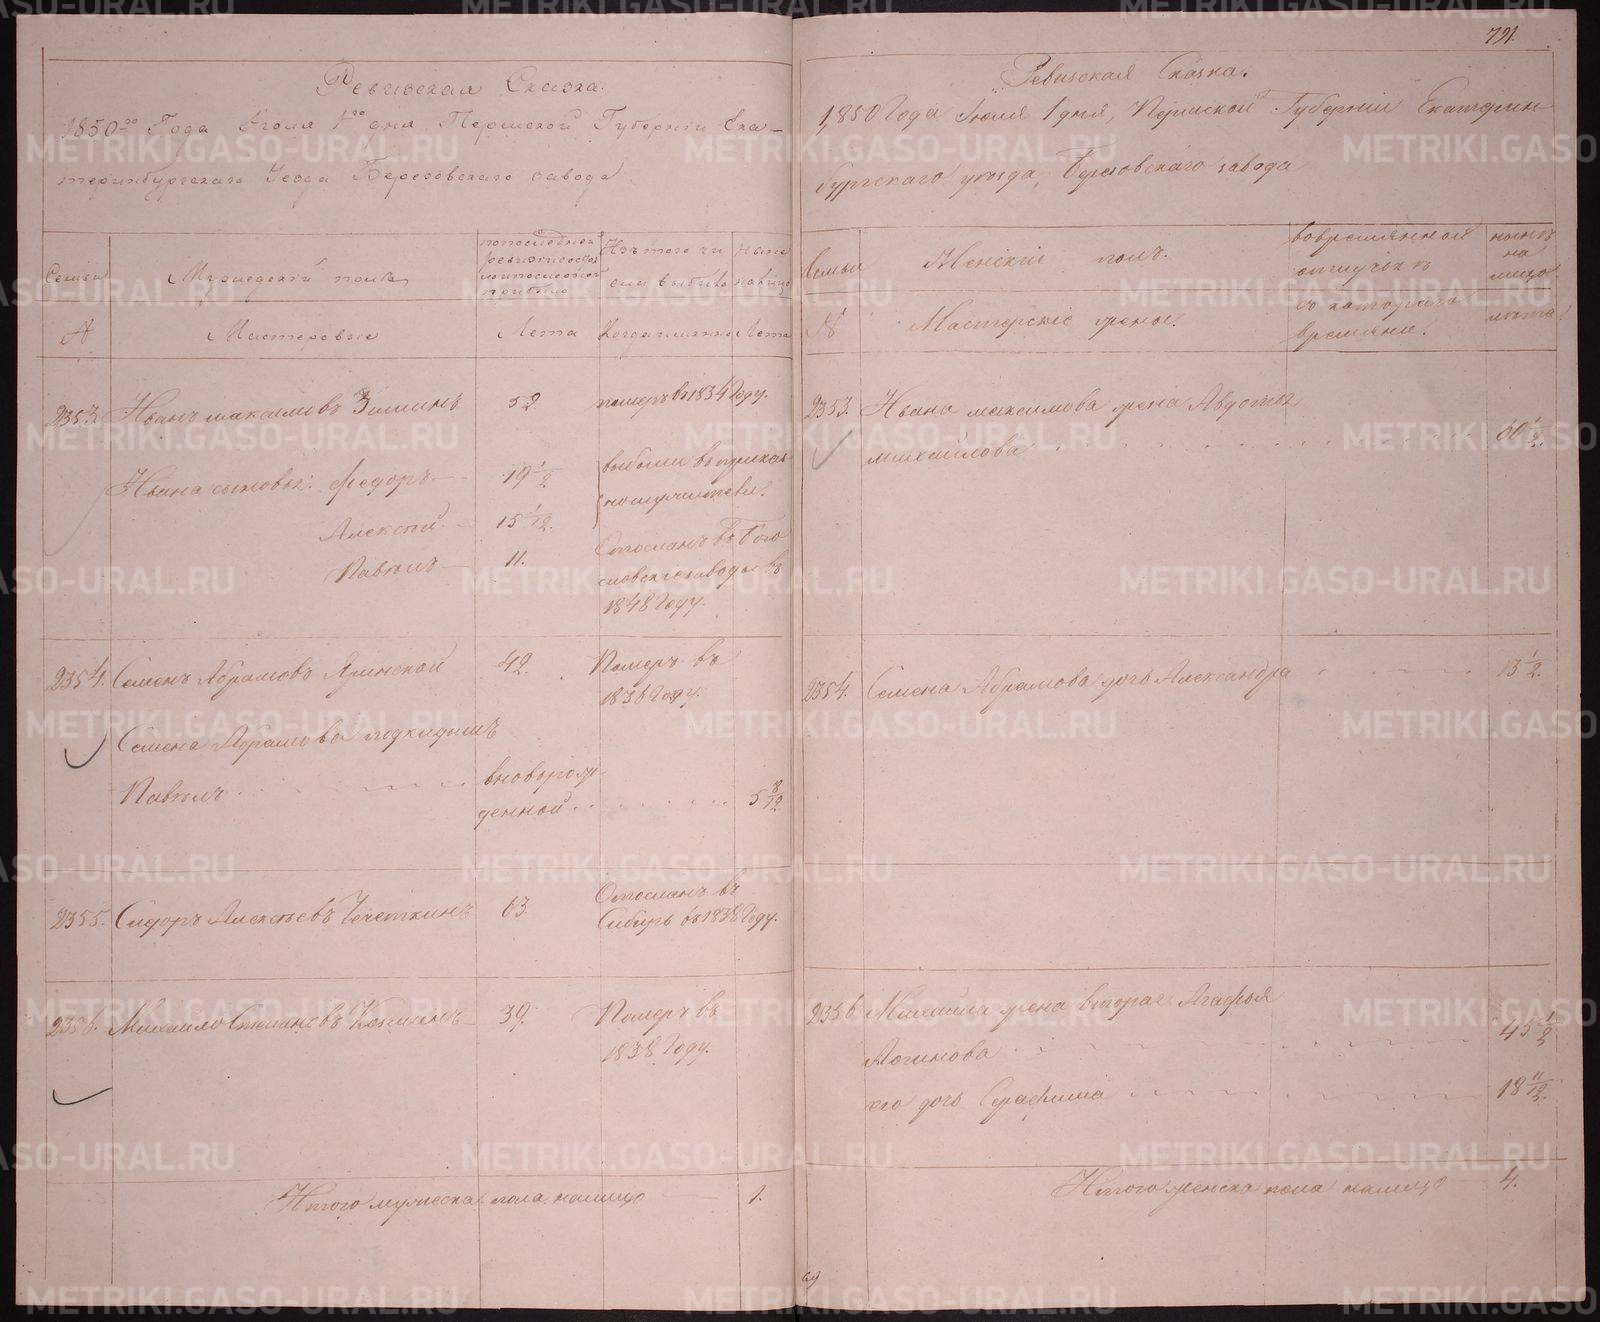 Ревизская Сказка.
1850го Года Июля 1го дня Пермской Губерніи Ека-
теринбургскаго Уезда Березовскаго завода
Семьи
Мужедскій полъ
по последней
ревизіи состоя
ло и после оной
прибыло
Изъ того чи
сла выбыло
Ныне
налицо
№
Мастеровые
Лета
Когда именно
Лета
2353. Иванъ максимовъ Зиминъ 52 померъ в 1834 Году.
Ивана сыновья: Федоръ 19 1/2
Алексей 15 1/12.
Павелъ 11.
Отосланъ въ Бого
словскіе заводы въ
1848 Году.
2354. Семенъ Абрамовъ Ялунской 42. Померъ въ
1836 Году.
Семена Абрамова подкидышъ
Павелъ вноворож-
денной 5 8/12
2355. Сидоръ Алексеевъ Чечеткинъ 63. Отосланъ въ
Сибирь въ 1838 Году.
2356. Михайло Степановъ Кошкинъ 39. Померъ въ
1838 Году.
Итого мужеска пола налицо 1.
721.
Ревизская Сказка.
1850 Года Июля 1 дня, Пермской Губерніи Екатерин-
бургскаго уезда, Березовскаго завода
Семьи
Женскій полъ.
во временной
отлучке
ныне
на
лицо
№
Мастерскіе жены.
съ котораго
времяни.
лета.
2353. Ивана максимова жена Авдотья
михайлова 60 1/2.
2354. Семена Абрамова дочь Александра 13 1/2.
2356 Михайла жена вторая Агафья
Логинова 45 1/2
его дочь Серафима 18 11/12.
Итого женска пола налицо 4.
69
METRIKI.GASO-URAL.RU